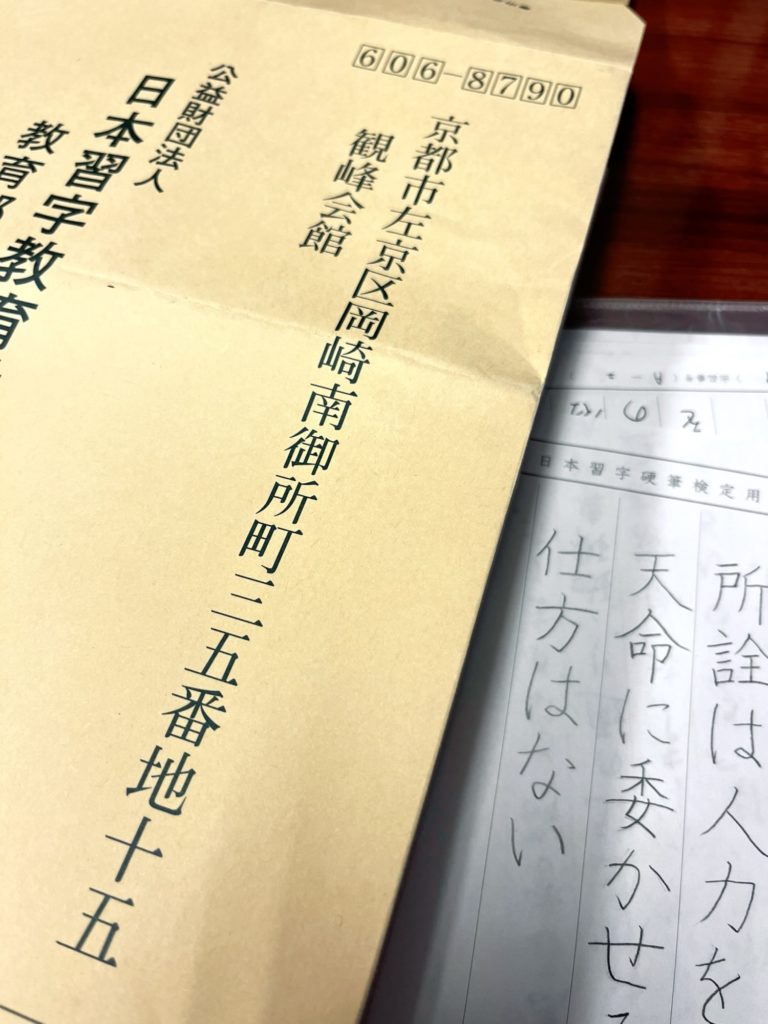 606-8790
京都市左京区岡崎南御所町三五番地十五
観峰会館
公益財団法人
日本習字教育
教育部
日本習字硬筆検定用
所詮は人力を
天命に委かせる
仕方はない